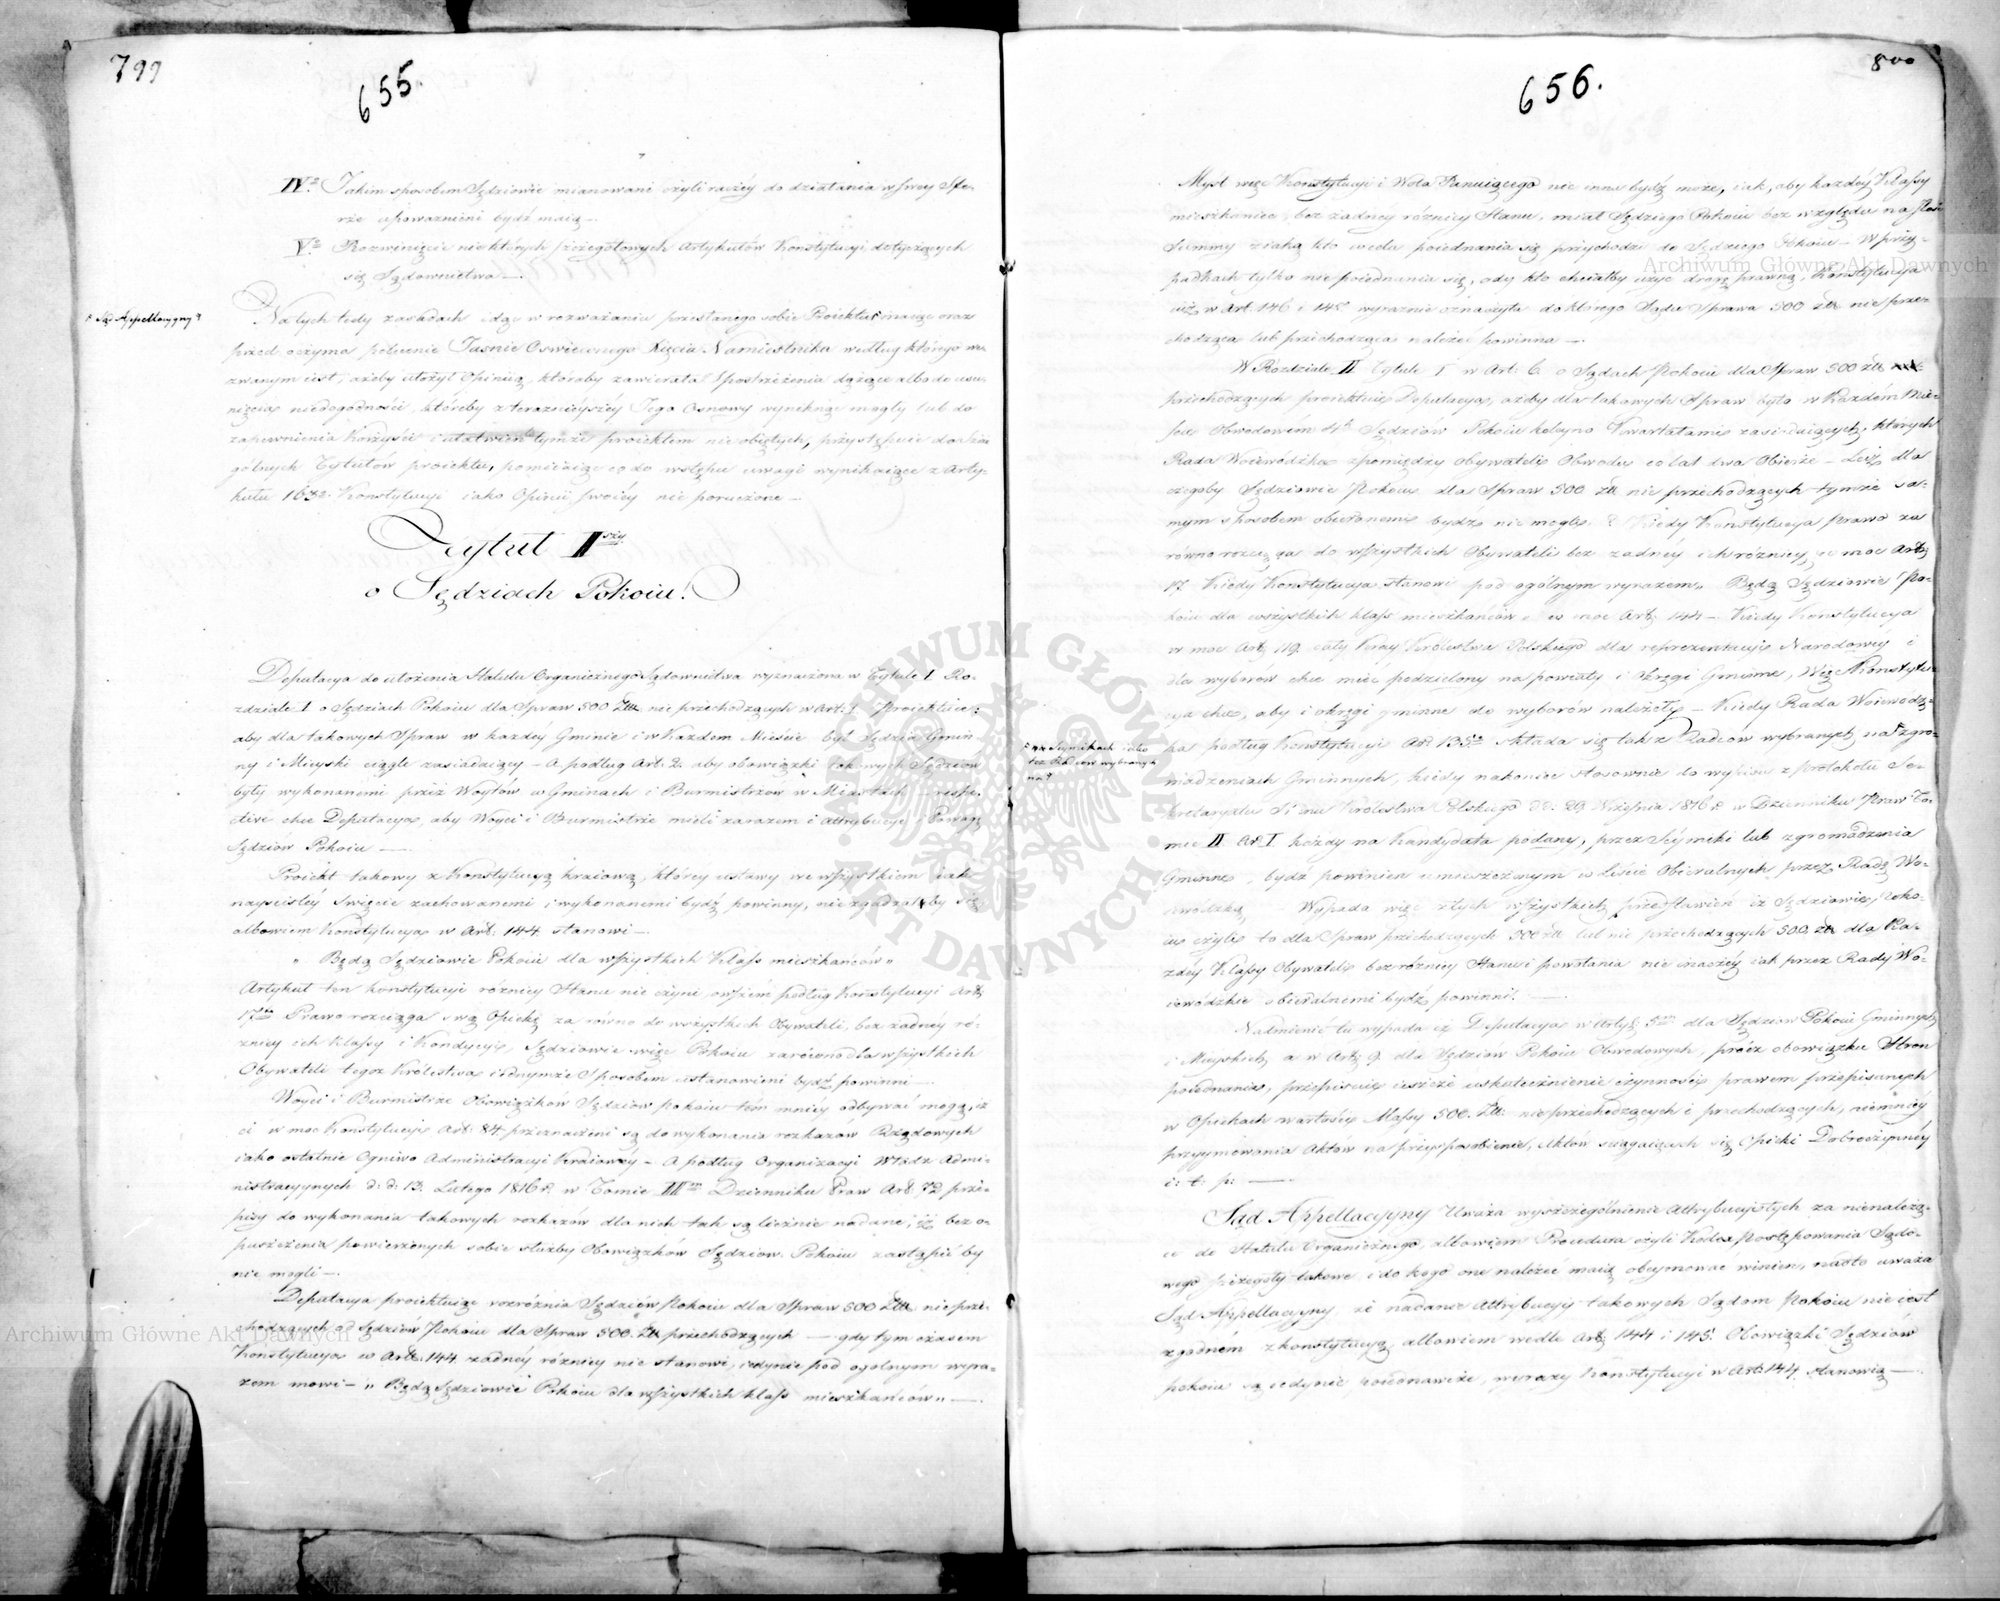 799
655.
IV.o Jakim sposobem Sędziowie mianowani czyli raczéy do działania w swey Sfe-
rże upoważnieni bydź maią —
V.o Rozwinięcie niektórych szczegułowych Artykułów Konstytucyi dotyczących
się Sądownictwa —.
Sąd Appellacyyny
Na tych tedy zasadach idąc w rozważaniu przesłanego sobie Proiektu maiąc oraz
przed oczyma polecenie Jaśnie Oświeconego Xięcia Namiestnika według którego we-
zwanym iest, ażeby ułożył Opiniią, któraby zawierała Spostrzeżenia dążące albo do usu-
nięcia niedogodności, któreby z teraznieyszéy Jego Osnowy wyniknąć mogły lub do
zapewnienia Korzyści i ułatwień tymże proiektem nie obiętych, przystępuie do szcze-
gólnych Tytułów proiektu, pomieiaiąc co do wstępu uwagi wynikaiące z Arty-
kułu 163o Konstytucyi iako Opinii swoiéy nie poruczone —
Tytuł I szy
o Sędziach Pokoiu.
Deputacya do ułożenia Statutu Organicznego Sądownictwa wyznaczona w Tytule I. Ro-
zdziale I o Sędziach Pokoiu dla Spraw 500 Złtt. nie przechodzących w Art: 1 Proiektuie:
aby dla takowych Spraw w każdey Gminie i w Każdem Mieście był Sędzia Gmin-
ny i Mieyski ciągle zasiadaiący — A podług Art: 2. aby obowiązki takowych Sędziów
były wykonanemi przéz Woytów w Gminach i Burmistrzów w Miastach — respe-
ctive chce Deputacya, aby Woyci i Burmistrze mieli zarazem i Attrybucye i Powagę
Sędziów Pokoiu —
Proiekt takowy z Konstytucyą kraiową, którey ustawy we wszystkiem iak
nayściśléy święcie zachowanemi i wykonanemi bydź powinny, nie zgadzałby się
albowiem Konstytucya w Art: 144. stanowi —
„ Będą Sędziowie Pokoiu dla wszystkich Klass mieszkańców „
Artykuł ten konstytucyi różnicy Stanu nie czyni, owszem podług Konstytucyi Art:
17go Prawo rozciąga swą Opiekę za równo do wszystkich Obywateli, bez żadnéy ró-
żnicy ich Klassy i Kondycyi, Sędziowie więc Pokoiu zarówno dla wszystkich
Obywateli tegoż Królestwa iednymże Sposobem ustanowieni bydź powinni —
Woyci i Burmistrze Obowiązków Sędziów pokoiu tém mniey odbywać mogą, iż
ci w moc Konstytucyi Art: 84. przeznaczeni są do wykonania rozkazów Rządowych
iako ostatnie Ogniwo Administracyi Kraiowéy — A podług Organizacyi Władz Admi-
nistracyynych d: d: 13. Lutego 1816 r. w Tomie III m Dziennika Praw Art: 72 prze-
pisy do wykonania takowych rozkazów dla nich tak są licznie nadane, iż bez o-
puszczenia powierzonych sobie służby Obowiązków Sędziów Pokoiu zastąpić by
nie mogli —.
Deputacya proiektuiąc rozróżnia Sędziów Pokoiu dla Spraw 500 Złtt. nie prze-
chodzących od Sędziów Pokoiu dla Spraw 500. Złt. przechodzących — gdy tym czasem
Konstytucya w Art: 144. żadnéy różnicy nie stanowi, iedynie pod ogolnym wyra-
zem mowi — „ Będą Sędziowie Pokoiu dla wszystkich klass mieszkańców „ —.
800
656.
Mysl więc Konstytucyi i Wola Panuiącego nie inna bydź może, iak, aby każdéy Klassy
mieszkaniec, bez żadnéy różnicy Stanu, miał Sędziego Pokoiu bez względu na Ilość
Summy z iaką kto w celu poiednania się przychodzi do Sędziego Pokoiu — W przy-
padkach tylko nie poiednania się, gdy kto chciałby użyć drogę prawną, Konstytucya
iuż w Art: 146 i 145. wyraznie oznaczyła do którego Sądu Sprawa 500 Złt. nie prze-
chodząca lub przechodząca należeć powinna —.
W Rozdziale II Tytule I w Art: 6. o Sądach Pokoiu dla Spraw 500 złt.
przechodzących proiektuie Deputacya, ażeby dla takowych Spraw było w Każdém Mie-
ście Obwodowém 4ch Sędziów Pokoiu koleyno Kwartałami zasiadaiących, których
Rada Woiewódzka zpomiędzy Obywateli Obwodu co lat dwa Obierze — Leiż dla
czegoby Sędziowie Pokoiu dla Spraw 500. Złt. nie przechodzących tymże sa-
mym sposobem obieranemi bydź nie mogli? Kiedy Konstytucya prawo za
równo rozciąga do wszystkich Obywateli bez żadnéy ich różnicy, w moc Art:
17. Kiedy Konstytucya stanowi pod ogólnym wyrazem „ Będą Sędziowie Po-
koiu dla wszystkich klass mieszkańców „ w moc Art: 144 — Kiedy Konstytucya
w moc Art: 119. cały Kray Królestwa Polskiego dla reprezentacyi Narodowey i
dla wyborów chce mieć podzielony na powiaty i Okręgi Gminne, Więc Konstytu-
cya chce, aby i okręgi gminne do wyborów należały — Kiedy Rada Woiewódz-
ka podług Konstytucyi Art: 135go składa się tak z Radców wybranych na Zgro-
na Seymikach iako
też Radców wybranych
na
madzeniach Gminnych, kiedy nakoniec stosownie do wypisu z protokołu Se-
kretaryatu Stanu Królestwa Polskiego d: 29. Września 1816 r. w Dzienniku Praw To-
mie II. Art: I. każdy na Kandydata podany, przez Séymiki lub zgromadzenia
Gminne, bydź powinien umieszczonym w Liście Obieralnych przez Radę Wo-
iewódzką — Wypada więc z tych wszystkich przedstawień iż Sędziowie Poko-
iu czyli to dla Spraw przechodzących 500 złt. lub nie przechodzących 500. złt. dla Ka-
żdey Klassy Obywateli bez różnicy Stanu i powołania nie inaczéy iak przez Rady Wo-
iewódzkie obieralnemi bydź powinni. —
Nadmienić tu wypada iż Deputacya w Artyk: 5m dla Sędziów Pokoiu Gminnych
i Mieyskich, a w Art: 9. dla Sędziów Pokoiu Obwodowych, prócz obowiązku Stron
poiednania, przepisuie ieszcze uskutecznienie czynności prawem przepisanych
w Opiekach wartości Massy 500. Złtt: nie przechodzących i przechodzących, niemniey
przyymowania Aktów na przysposobienie, Aktów ściągaiących się Opieki Dobroczynnéy
i: t: p: —.
Sąd Appellacyyny Uważa wyszczególnienie Attrybucyi tych za nienależą-
ce do Statutu Organicznego, albowiem Procedura czyli Kodex Postępowania Sądo-
wego szczegóły takowe i do kogo one należeć maią obeymować winien, nadto uważa
Sąd Appellacyyny że nadanie Attrybucyy takowych Sądom Pokoiu nie iest
zgodném z konstytucyą albowiem wedle Art: 144 i 145. Obowiązki Sędziów
pokoiu są iedynie poiednawcze, wyrazy Konstytucyi w Art: 144 stanowią —
ARCHIWUM GŁÓWNE AKT DAWNYCH
Archiwum Główne Akt Dawnych
Archiwum Główne Akt Dawnych